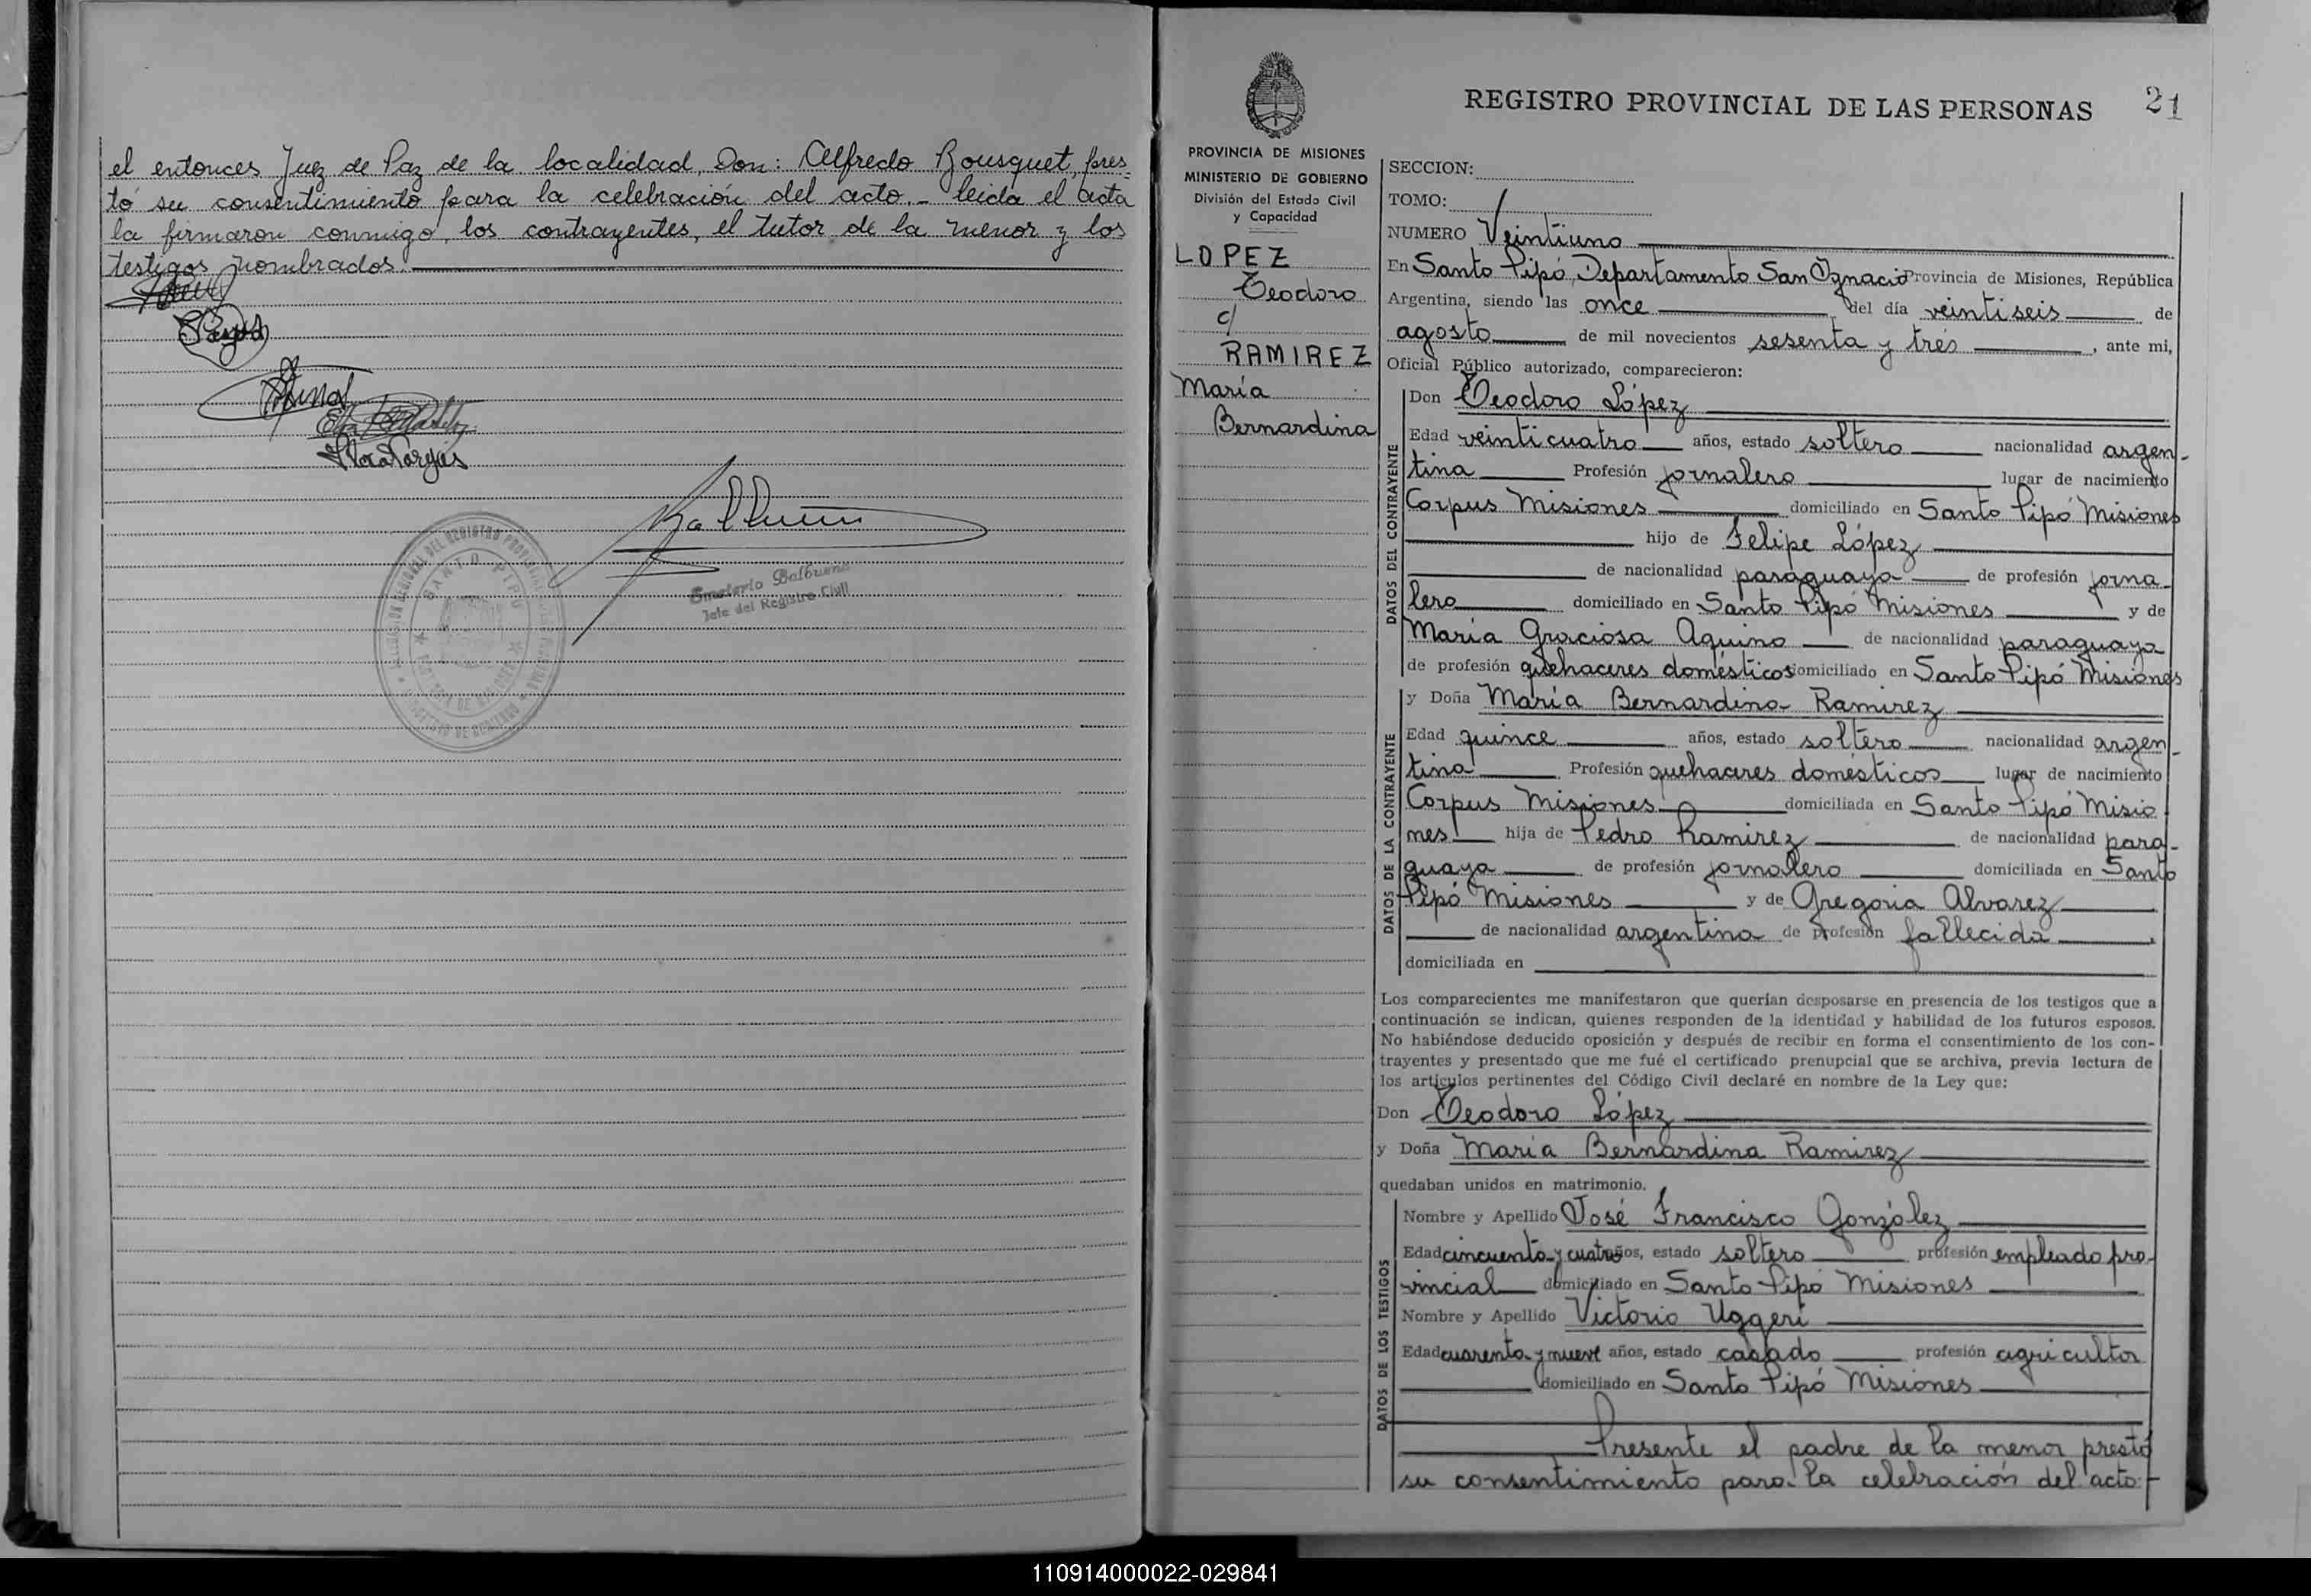 el entonces Juez de Paz de la localidad, Don: Alfredo Bousquet, pres=
tó su consentimiento para la celebración del acto.- leida el acta
la firmaron conmigo, los contrayentes, el tutor de la menor y los
testigos nombrados.
Flora Vargas
SANTO PIPO
Emeterio Balbuena
Jefe del Registro Civil
REGISTRO PROVINCIAL DE LAS PERSONAS 21
PROVINCIA DE MISIONES
MINISTERIO DE GOBIERNO
División del Estado Civil
y Capacidad
LOPEZ
Teodoro
c/
RAMIREZ
María
Bernardina
SECCION:
TOMO:
NUMERO Veintiuno
En Santo Pipó, Departamento San Ignacio Provincia de Misiones, República
Argentina, siendo las once del día veintiseis de
agosto de mil novecientos sesenta y tres, ante mi,
Oficial Público autorizado, comparecieron:
DATOS DEL CONTRAYENTE
Don Teodoro López
Edad veinticuatro años, estado soltero nacionalidad argen-
tina Profesión jornalero lugar de nacimiento
Corpus Misiones domiciliado en Santo Pipó Misiones
hijo de Felipe López
de nacionalidad paraguaya de profesión jorna-
lero domiciliado en Santo Pipó Misiones y de
María Graciosa Aquino de nacionalidad paraguaya
de profesión quehaceres domésticos domiciliado en Santo Pipó Misiones
DATOS DE LA CONTRAYENTE
y Doña María Bernardina Ramirez
Edad quince años, estado soltero nacionalidad argen-
tina Profesión quehaceres domésticos lugar de nacimiento
Corpus Misiones domiciliada en Santo Pipó Misio
nes hija de Pedro Ramirez de nacionalidad para-
guaya de profesión jornalero domiciliada en Santo
Pipó Misiones y de Gregoria Alvarez
de nacionalidad argentina de profesión fallecida
domiciliada en
Los comparecientes me manifestaron que querían desposarse en presencia de los testigos que a
continuación se indican, quienes responden de la identidad y habilidad de los futuros esposos.
No habiéndose deducido oposición y después de recibir en forma el consentimiento de los con-
trayentes y presentado que me fué el certificado prenupcial que se archiva, previa lectura de
los artículos pertinentes del Código Civil declaré en nombre de la Ley que:
Don Teodoro López
y Doña María Bernardina Ramirez
quedaban unidos en matrimonio.
DATOS DE LOS TESTIGOS
Nombre y Apellido José Francisco González
Edad cincuenta y cuatro años, estado soltero profesión empleado pro-
vincial domiciliado en Santo Pipó Misiones
Nombre y Apellido Victorio Uggeri
Edad cuarenta y nueve años, estado casado profesión agricultor
domiciliado en Santo Pipó Misiones
Presente el padre de la menor prestó
su consentimiento para la celebración del acto.-
110914000022-029841